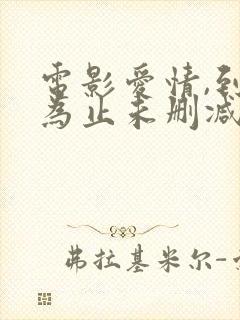 電影愛情,到
為止未刪減
弗拉基米尔-